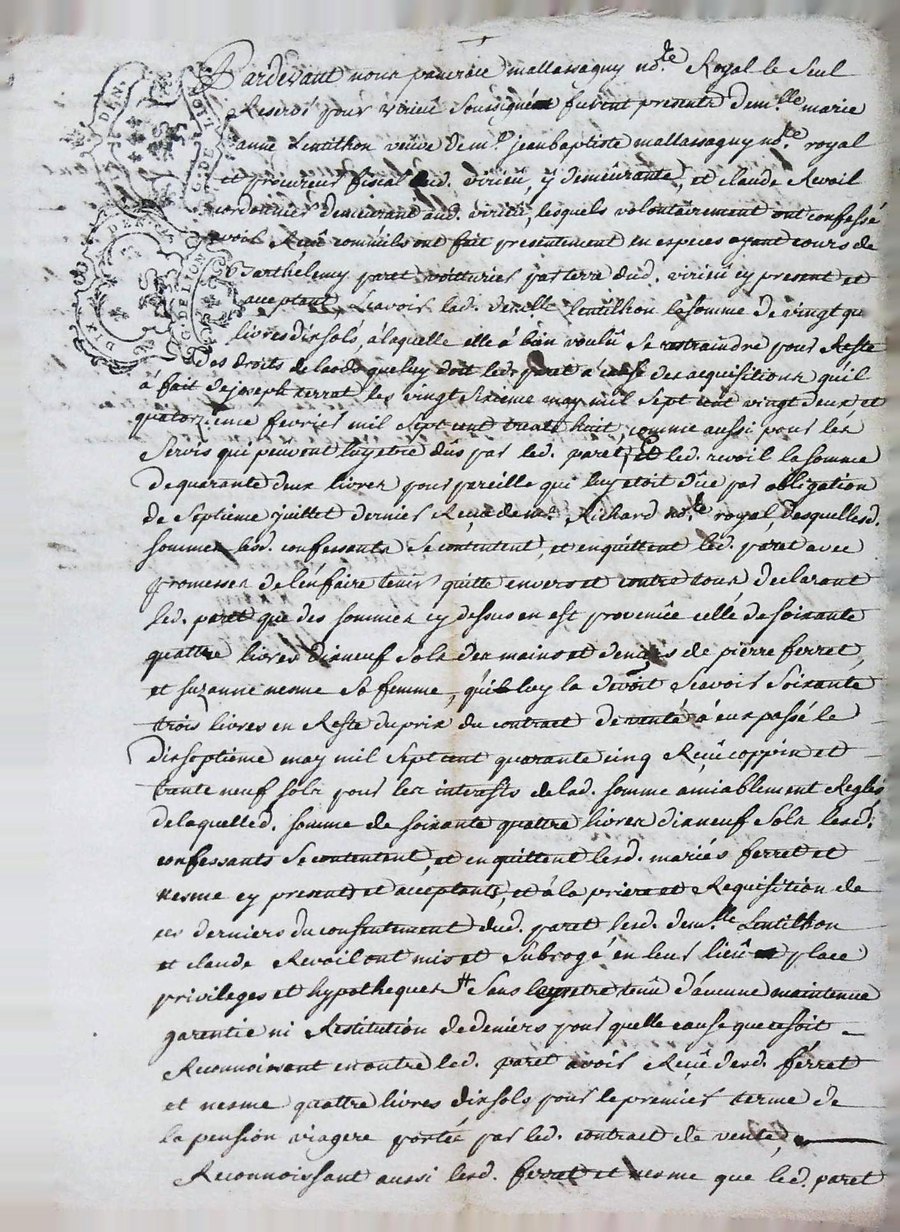 Pardevant nous pancrace mallassagny no.re Royal le Seul
Reservé pour virieû Soussigné furent presents dem.lle marie
anne Lentilhon veuve de m.e jeanbaptiste mallassagny no.re royal
et procureur fiscal aud. virieû, y demeurante, et claude Revoil
cordonnier demeurant aud. virieû, lesquels volontairement ont confessé
avoir Receû comm'ils ont fait presentement en especes ayant cours de
Barthelemy paret voiturier par terre dud. virieû cy present et
acceptant Scavoir lad. dem.lle Lentilhon la somme de vingt
livres dix sols, à laquelle elle à bien voulû Se restraindre pour Reste
des droits de laods que luy doit led. paret à cause des acquisitions qu'il
à fait de joseph terrat les vingt Sixieme may mil Sept cent vingt deux et
fevrier mil Sept cent trente huit, comme aussi pour les
Servis qui peuvent luy etre dûs par led. paret, et led. revoil la somme
de quarante deux livres pour pareille qui luy etoit dûe par obligation
de Septieme juillet dernier Receûe de m.e Richard no.re royal, desquelles d.
sommes lesd. confessants Se contentent, et en quittent led. paret avec
promesses de l'en faire tenir quitte envers et contre tous declarant
led. paret que des sommes cy dessus en est provenûe celle de soixante
quattre livres dixneuf Sols des mains et deniers de pierre ferret,
et suzanne nesme Sa femme, qu'il luy la devoit Scavoir Soixante
trois livres en Reste du prix du contract de vente à eux passé le
dixseptieme may mil Sept cent quarante cinq Receû coppin et
trente neuf sols pour les interests de lad. somme amiablement Reglés
de laquelle d. somme de soixante quattre livres dixneuf Sols lesd.
confessants Se contentent, et en quittent lesd. mariés ferret et
nesme cy presents et acceptants, et à la priere et Requisition de
ces derniers du consentement dud. paret lesd. dem.lle Lentilhon
et claude Revoil ont mis et Subrogé en leur lieû et place
privileges et hypotheques # Sans etre tenû d'aucune maintenue
garentie ni Restitution de deniers pour quelle cause que ce soit
Reconnoissant en outre led. paret avoir Receû desd. ferret
et nesme quattre livres dix sols pour le premier terme de
la pension viagere portée par led. contract de vente,
Reconnoissant aussi lesd. ferret et nesme que led. paret